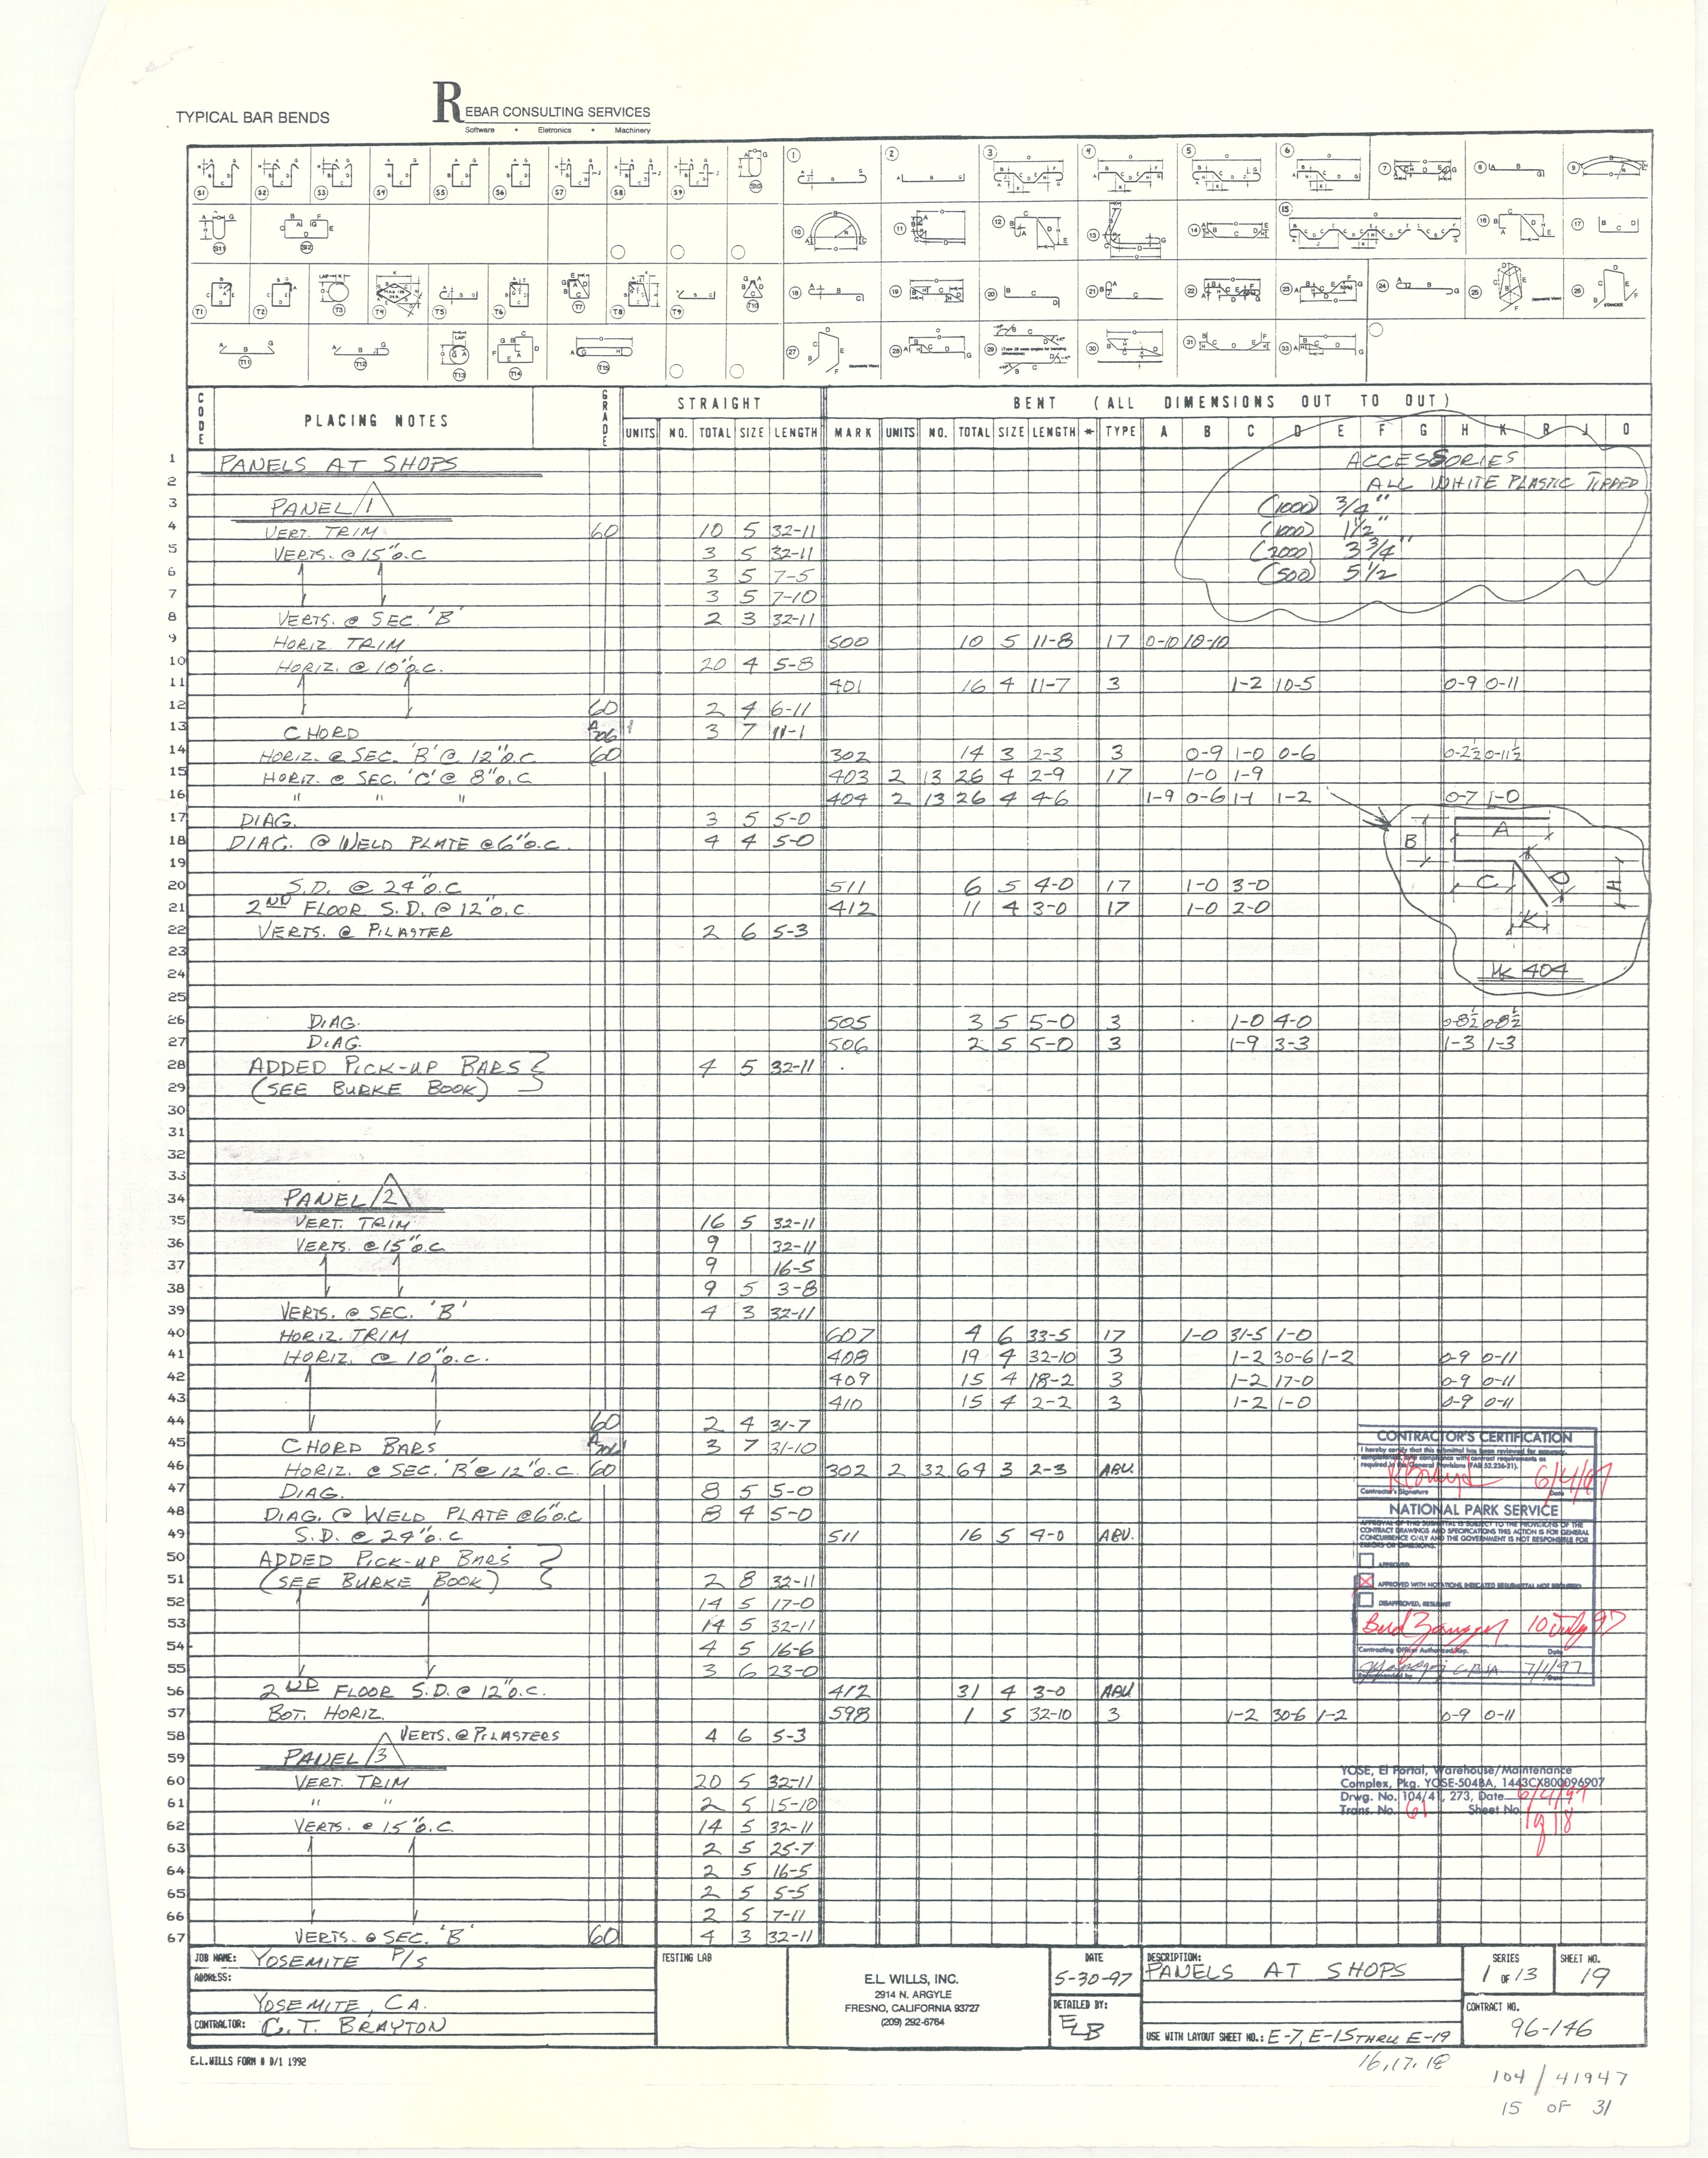 TYPICAL BAR BENDS
REBAR CONSULTING SERVICES
Software • Eletronics • Machinery
CODE PLACING NOTES GRADE STRAIGHT BENT (ALL DIMENSIONS OUT TO OUT)
UNITS NO. TOTAL SIZE LENGTH MARK UNITS NO. TOTAL SIZE LENGTH * TYPE A B C D E F G H K R J O
1 PANELS AT SHOPS
2
3 PANEL 1
4 VERT. TRIM 60 10 5 32-11
5 VERTS. @ 15" O.C 3 5 32-11
6 3 5 7-5
7 3 5 7-10
8 VERTS. @ SEC. 'B' 2 3 32-11
9 HORIZ. TRIM 500 10 5 11-8 17 0-10 10-10
10 HORIZ. @ 10" O.C. 20 4 5-8
11 401 16 4 11-7 3 1-2 10-5 0-9 0-11
12 60 2 4 6-11
13 CHORD A706 3 7 11-1
14 HORIZ. @ SEC. 'B' @ 12" O.C 60 302 14 3 2-3 3 0-9 1-0 0-6 0-2½ 0-11½
15 HORIZ. @ SEC. 'C' @ 8" O.C 403 2 13 26 4 2-9 17 1-0 1-9
16 " " " 404 2 13 26 4 4-6 1-9 0-6 1-1 1-2 0-7 1-0
17 DIAG. 3 5 5-0
18 DIAG. @ WELD PLATE @ 6" O.C. 4 4 5-0
19
20 S.D. @ 24" O.C 511 6 5 4-0 17 1-0 3-0
21 2ND FLOOR S.D. @ 12" O.C. 412 11 4 3-0 17 1-0 2-0
22 VERTS. @ PILASTER 2 6 5-3
23
24
25
26 DIAG. 505 3 5 5-0 3 1-0 4-0 0-8½ 0-8½
27 DIAG. 506 2 5 5-0 3 1-9 3-3 1-3 1-3
28 ADDED PICK-UP BARS 4 5 32-11
29 (SEE BURKE BOOK)
30
31
32
33
34 PANEL 2
35 VERT. TRIM 16 5 32-11
36 VERTS. @ 15" O.C 9 32-11
37 9 16-5
38 9 5 3-8
39 VERTS. @ SEC. 'B' 4 3 32-11
40 HORIZ. TRIM 607 4 6 33-5 17 1-0 31-5 1-0
41 HORIZ. @ 10" O.C. 408 19 4 32-10 3 1-2 30-6 1-2 0-9 0-11
42 409 15 4 18-2 3 1-2 17-0 0-9 0-11
43 410 15 4 2-2 3 1-2 1-0 0-9 0-11
44 60 2 4 31-7
45 CHORD BARS A706 3 7 31-10
46 HORIZ. @ SEC. 'B' @ 12" O.C. 60 302 2 32 64 3 2-3 ABV.
47 DIAG. 8 5 5-0
48 DIAG. @ WELD PLATE @ 6" O.C 8 4 5-0
49 S.D. @ 24" O.C 511 16 5 4-0 ABV.
50 ADDED PICK-UP BARS
51 (SEE BURKE BOOK) 2 8 32-11
52 14 5 17-0
53 14 5 32-11
54 4 5 16-6
55 3 6 23-0
56 2ND FLOOR S.D. @ 12" O.C. 412 31 4 3-0 ABV
57 BOT. HORIZ. 598 1 5 32-10 3 1-2 30-6 1-2 0-9 0-11
58 VERTS. @ PILASTERS 4 6 5-3
59 PANEL 3
60 VERT. TRIM 20 5 32-11
61 " " 2 5 15-10
62 VERTS. @ 15" O.C. 14 5 32-11
63 2 5 25-7
64 2 5 16-5
65 2 5 5-5
66 2 5 7-11
67 VERTS. @ SEC. 'B' 60 4 3 32-11
ACCESSORIES
ALL WHITE PLASTIC TIPPED
(1000) 3/4"
(1000) 1 1/2"
(2000) 3 3/4"
(500) 5 1/2
A
B
C
D
H
K
MK 404
CONTRACTOR'S CERTIFICATION
I hereby certify that this submittal has been reviewed for accuracy,
completeness, and compliance with contract requirements as
required in the General Provisions (FAR 52.236-21).
6/4/97
Contractor's Signature Date
NATIONAL PARK SERVICE
APPROVAL OF THIS SUBMITTAL IS SUBJECT TO THE PROVISIONS OF THE
CONTRACT DRAWINGS AND SPECIFICATIONS THIS ACTION IS FOR GENERAL
CONCURRENCE ONLY AND THE GOVERNMENT IS NOT RESPONSIBLE FOR
ERRORS OR OMISSIONS.
APPROVED
APPROVED WITH NOTATIONS INDICATED RESUBMITTAL NOT REQUIRED
DISAPPROVED, RESUBMIT
10 July 97
Contracting Officer Authorized Rep. Date
7/1/97
YOSE, El Portal, Warehouse/Maintenance
Complex, Pkg. YOSE-504BA, 1443CX800096907
Drwg. No. 104/41, 273, Date 6/4/97
Trans. No. 61 Sheet No. 1 of 18
JOB NAME: YOSEMITE P/S
ADDRESS:
YOSEMITE, CA.
CONTRACTOR: C.T. BRAYTON
TESTING LAB
E.L. WILLS, INC.
2914 N. ARGYLE
FRESNO, CALIFORNIA 93727
(209) 292-6764
DATE
5-30-97
DETAILED BY:
ELB
DESCRIPTION:
PANELS AT SHOPS
USE WITH LAYOUT SHEET NO.: E-7, E-15 THRU E-19
SERIES
1 OF 13
SHEET NO.
19
CONTRACT NO.
96-146
E.L.WILLS FORM # D/1 1992
16, 17, 18
104 / 41947
15 OF 31